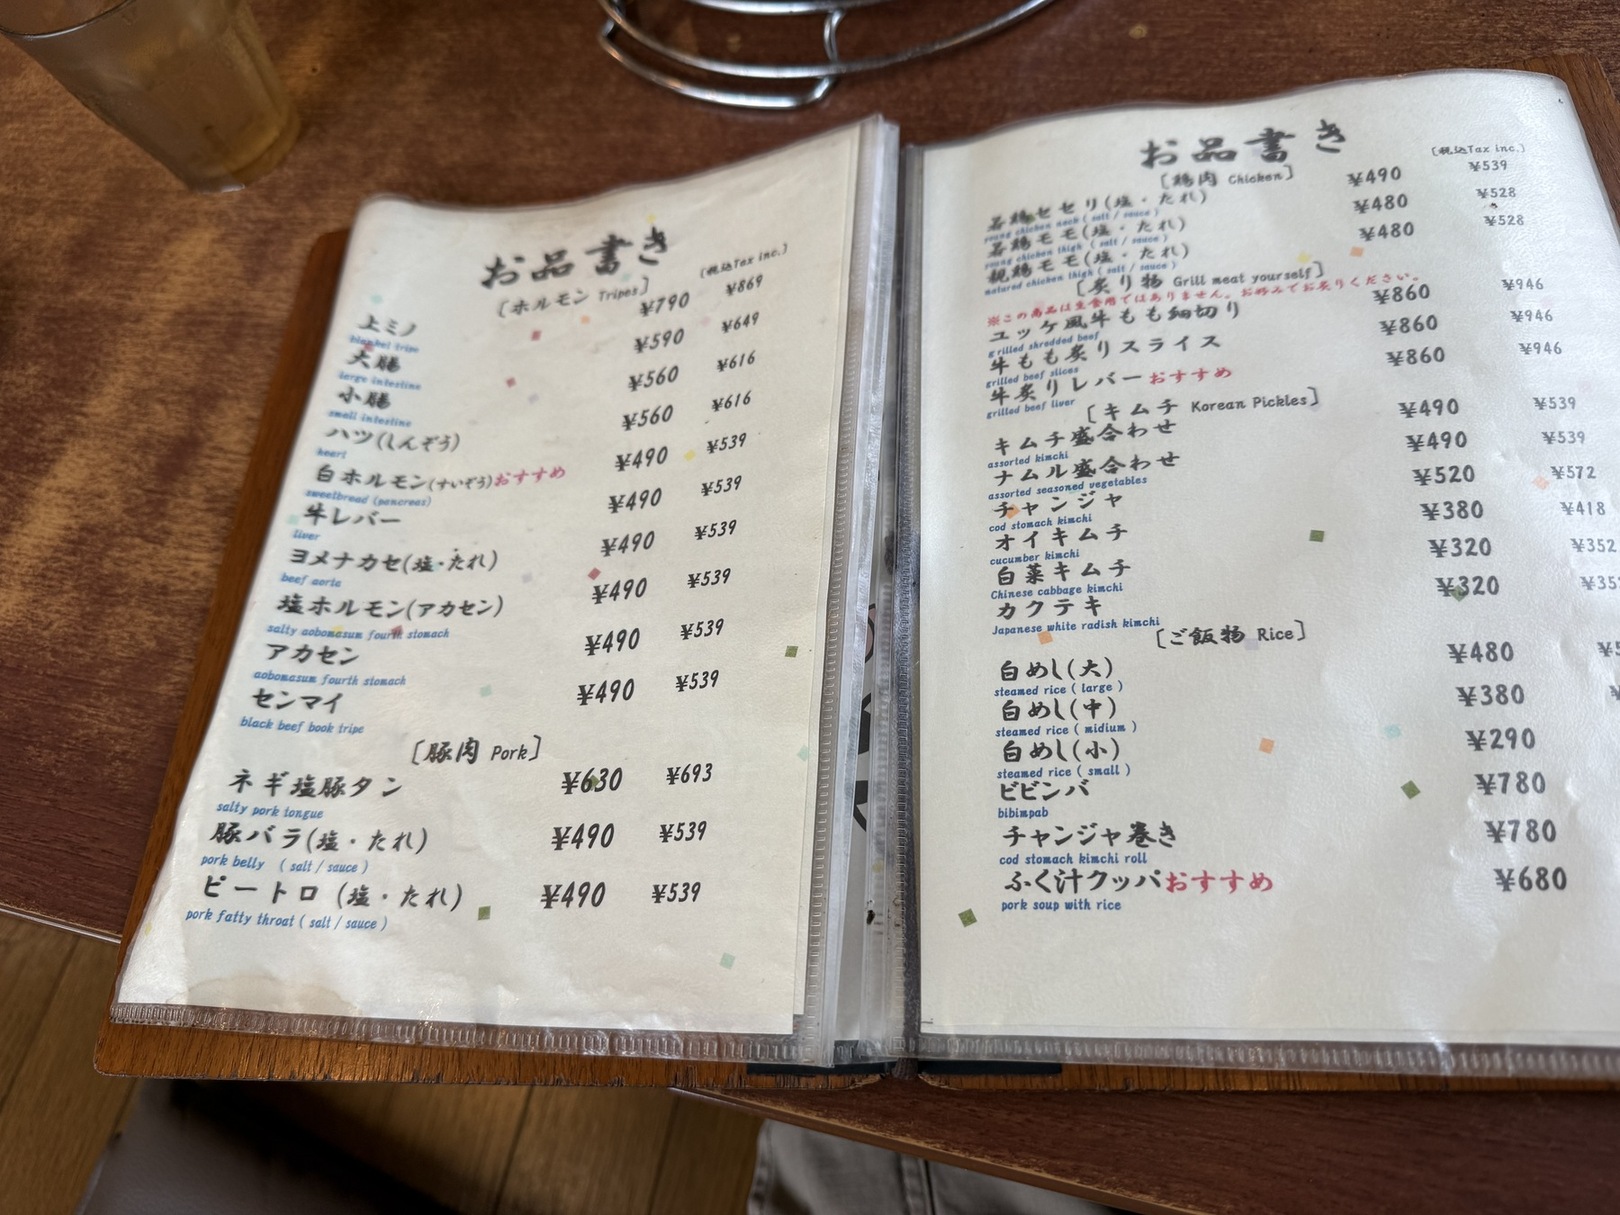 お品書き
[ホルモン Tripes] (税込Tax inc.)
上ミノ ¥790 ¥869
blanket tripe
大腸 ¥590 ¥649
large intestine
小腸 ¥560 ¥616
small intestine
ハツ(しんぞう) ¥560 ¥616
heart
白ホルモン(すいぞう)おすすめ ¥490 ¥539
sweetbread (pancreas)
牛レバー ¥490 ¥539
liver
ヨメナカセ(塩・たれ) ¥490 ¥539
beef aorta
塩ホルモン(アカセン) ¥490 ¥539
salty aobomasum fourth stomach
アカセン ¥490 ¥539
aobomasum fourth stomach
センマイ ¥490 ¥539
black beef book tripe
[豚肉 Pork]
ネギ塩豚タン ¥630 ¥693
salty pork tongue
豚バラ(塩・たれ) ¥490 ¥539
pork belly ( salt / sauce )
ピートロ (塩・たれ) ¥490 ¥539
pork fatty throat ( salt / sauce )
お品書き
[鶏肉 Chicken] (税込Tax inc.)
若鶏セセリ(塩・たれ) ¥490 ¥539
young chicken neck ( salt / sauce )
若鶏モモ(塩・たれ) ¥480 ¥528
young chicken thigh ( salt / sauce )
親鶏モモ(塩・たれ) ¥480 ¥528
matured chicken thigh ( salt / sauce )
[炙り物 Grill meat yourself]
※この商品は生食用ではありません。お好みでお炙りください。
ユッケ風牛もも細切り ¥860 ¥946
grilled shredded beef
牛もも炙りスライス ¥860 ¥946
grilled beef slices
牛炙りレバーおすすめ ¥860 ¥946
grilled beef liver
[キムチ Korean Pickles]
キムチ盛合わせ ¥490 ¥539
assorted kimchi
ナムル盛合わせ ¥490 ¥539
assorted seasoned vegetables
チャンジャ ¥520 ¥572
cod stomach kimchi
オイキムチ ¥380 ¥418
cucumber kimchi
白菜キムチ ¥320 ¥352
Chinese cabbage kimchi
カクテキ ¥320
Japanese white radish kimchi
[ご飯物 Rice]
白めし(大) ¥480
steamed rice ( large )
白めし(中) ¥380
steamed rice ( midium )
白めし(小) ¥290
steamed rice ( small )
ビビンバ ¥780
bibimpab
チャンジャ巻き ¥780
cod stomach kimchi roll
ふく汁クッパおすすめ ¥680
pork soup with rice